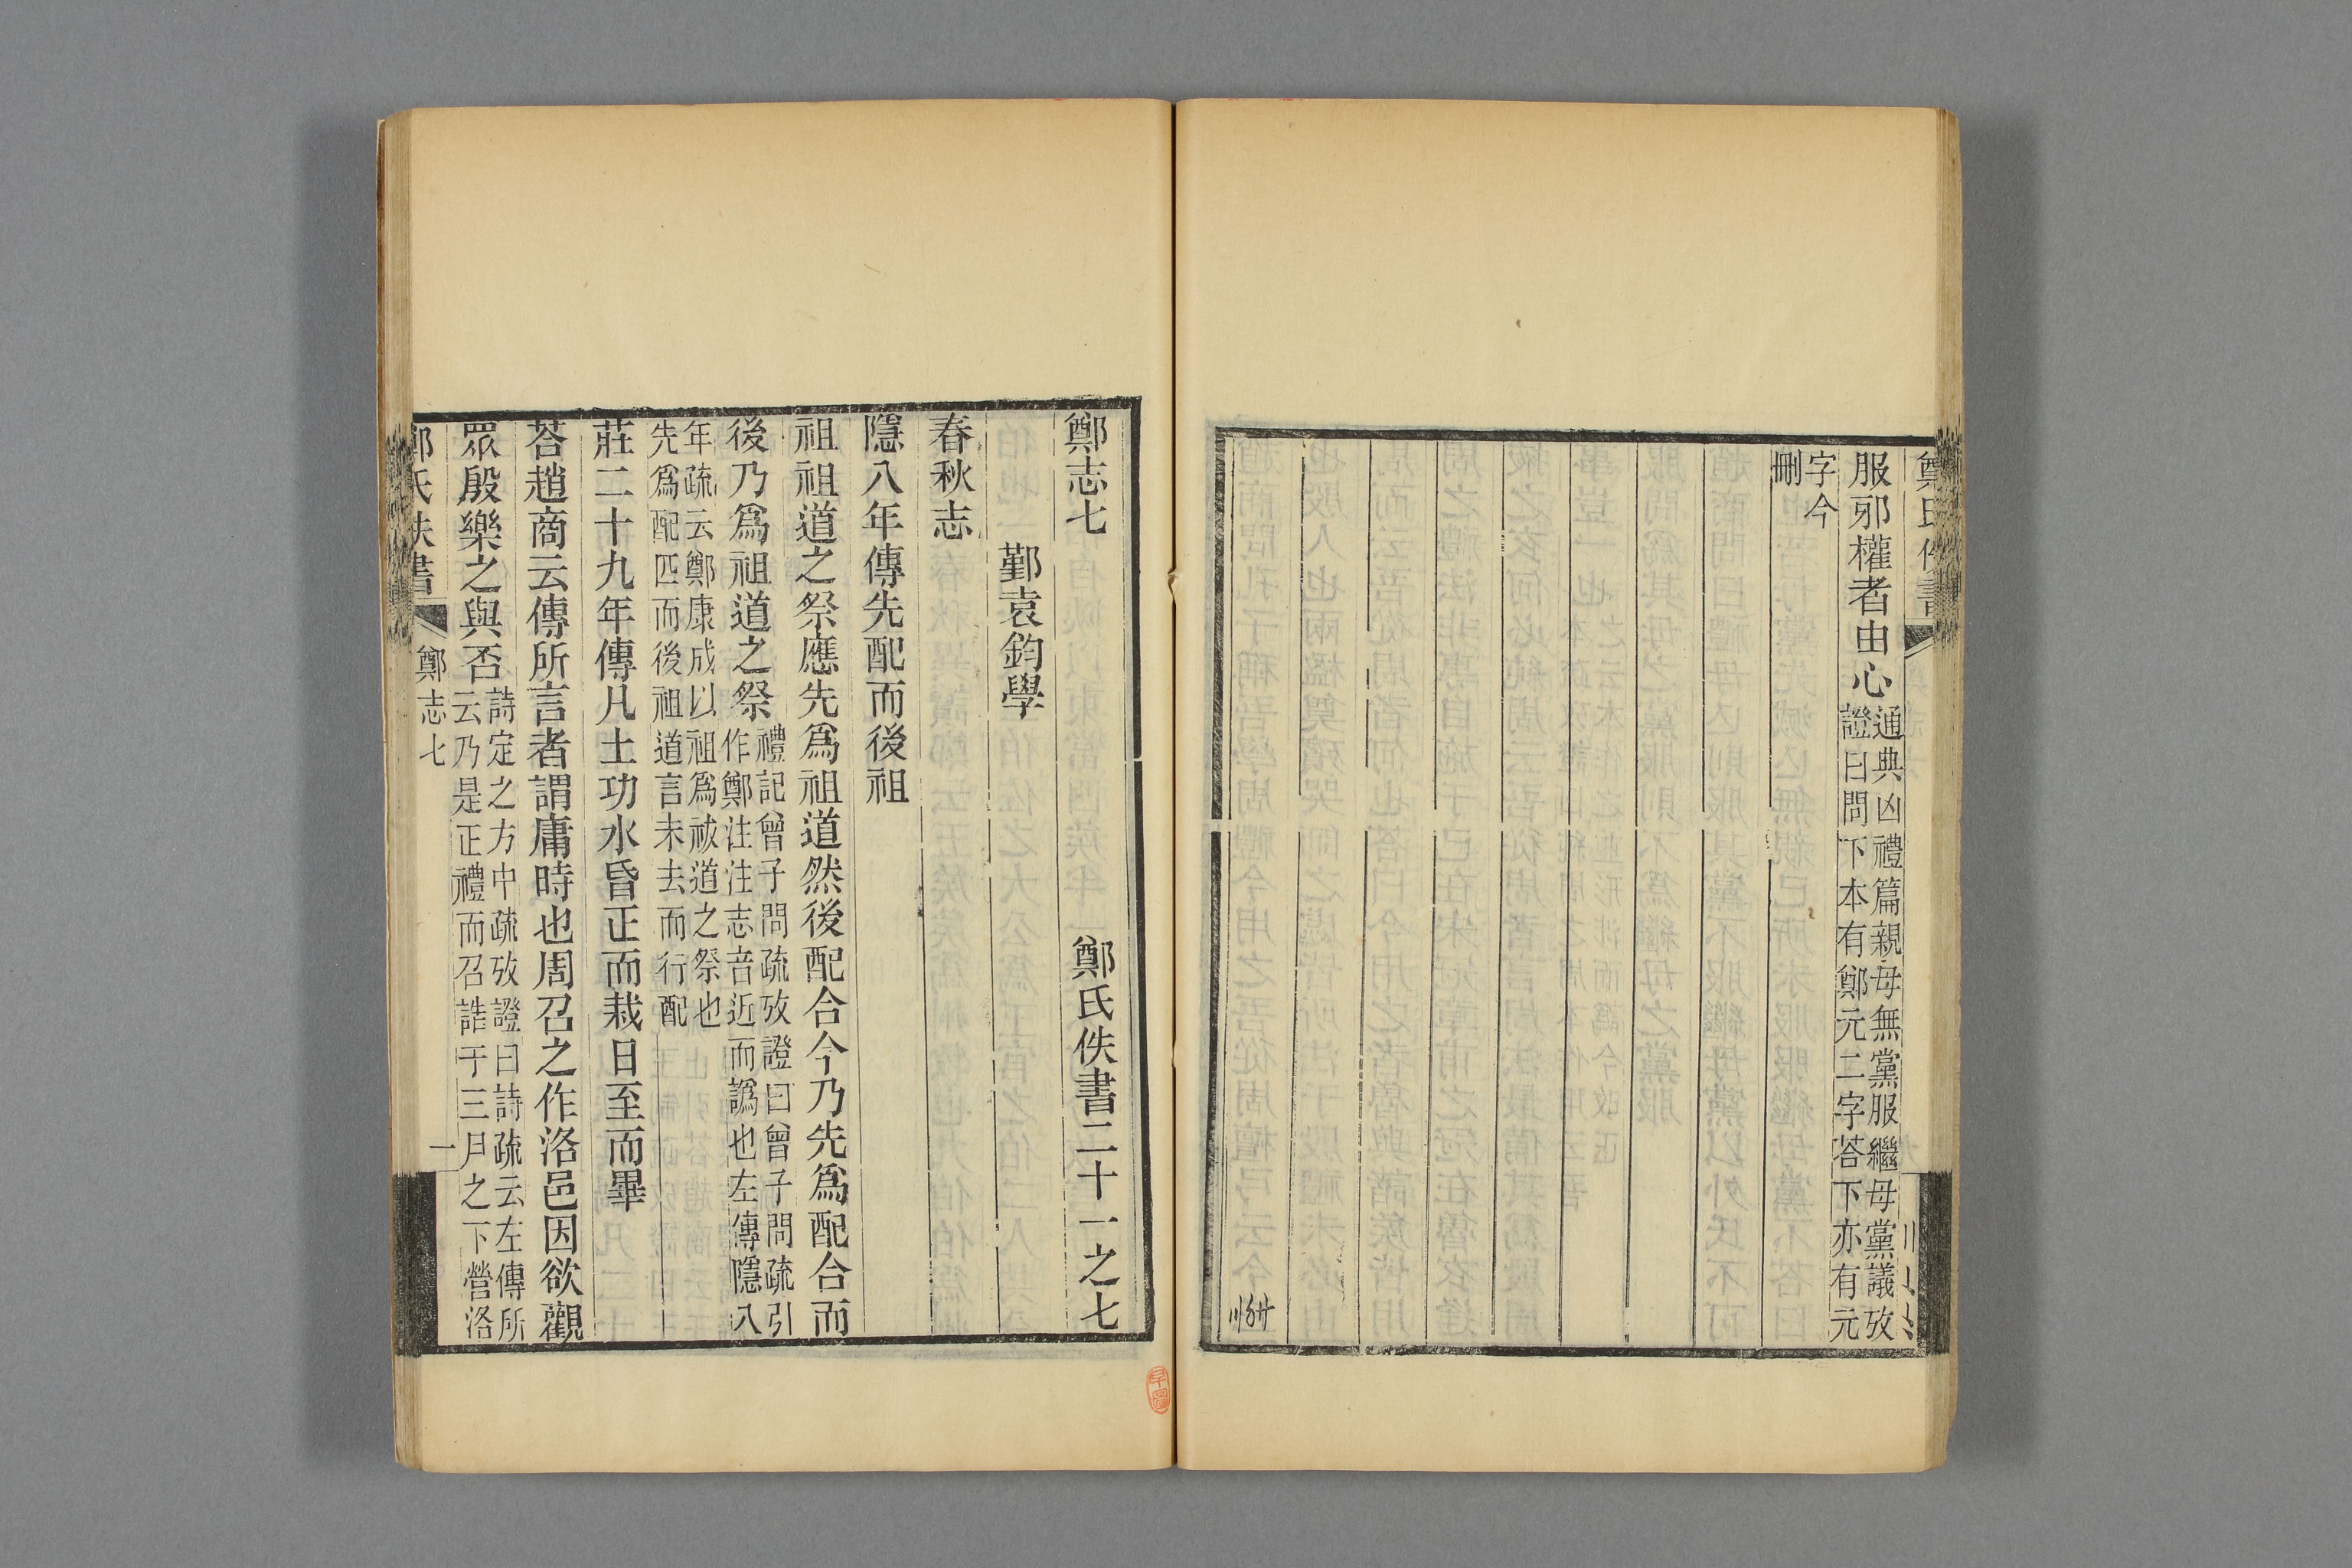 服邪權者由心通典凶禮篇親母無黨服繼母黨議攷
證曰問下本有鄭元二字荅下亦有元
字今
刪
鄭志七　鄭氏佚書二十一之七
鄞袁鈞學
春秋志
隱八年傳先配而後祖
祖祖道之祭應先爲祖道然後配合今乃先爲配合而
後乃爲祖道之祭禮記曾子問疏攷證曰曾子問疏引
作鄭注注志音近而譌也左傳隱八
年疏云鄭康成以祖爲祓道之祭也
先爲配匹而後祖道言未去而行配
莊二十九年傳凡土功水昏正而栽日至而畢
荅趙商云傳所言者謂庸時也周召之作洛邑因欲觀
眾殷樂之與否詩定之方中疏攷證曰詩疏云左傳所
云乃是正禮而召誥于三月之下營洛
鄭氏佚書　鄭志七　一